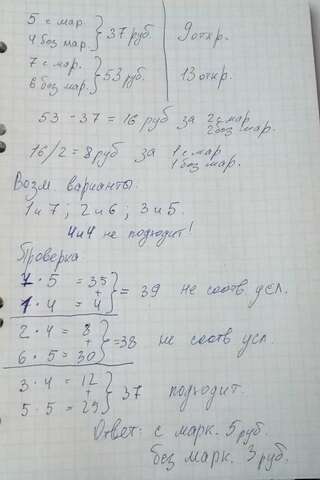 5 с мар.
4 без мар. } 37 руб. | 9 откр.
7 с мар.
6 без мар. } 53 руб. | 13 откр.
53 - 37 = 16 руб за 2 с мар. 2 без мар.
16/2 = 8 руб за 1 с мар 1 без мар.
Возм. варианты.
1 и 7 ; 2 и 6 ; 3 и 5.
4 и 4 не подходит!
Проверка
7 · 5 = 35
+
1 · 4 = 4 } = 39 не соотв. усл.
2 · 4 = 8
+
6 · 5 = 30 } = 38 не соотв усл.
3 · 4 = 12
+
5 · 5 = 25 } 37 подходит.
Ответ: с марк. 5 руб.
без марк. 3 руб.